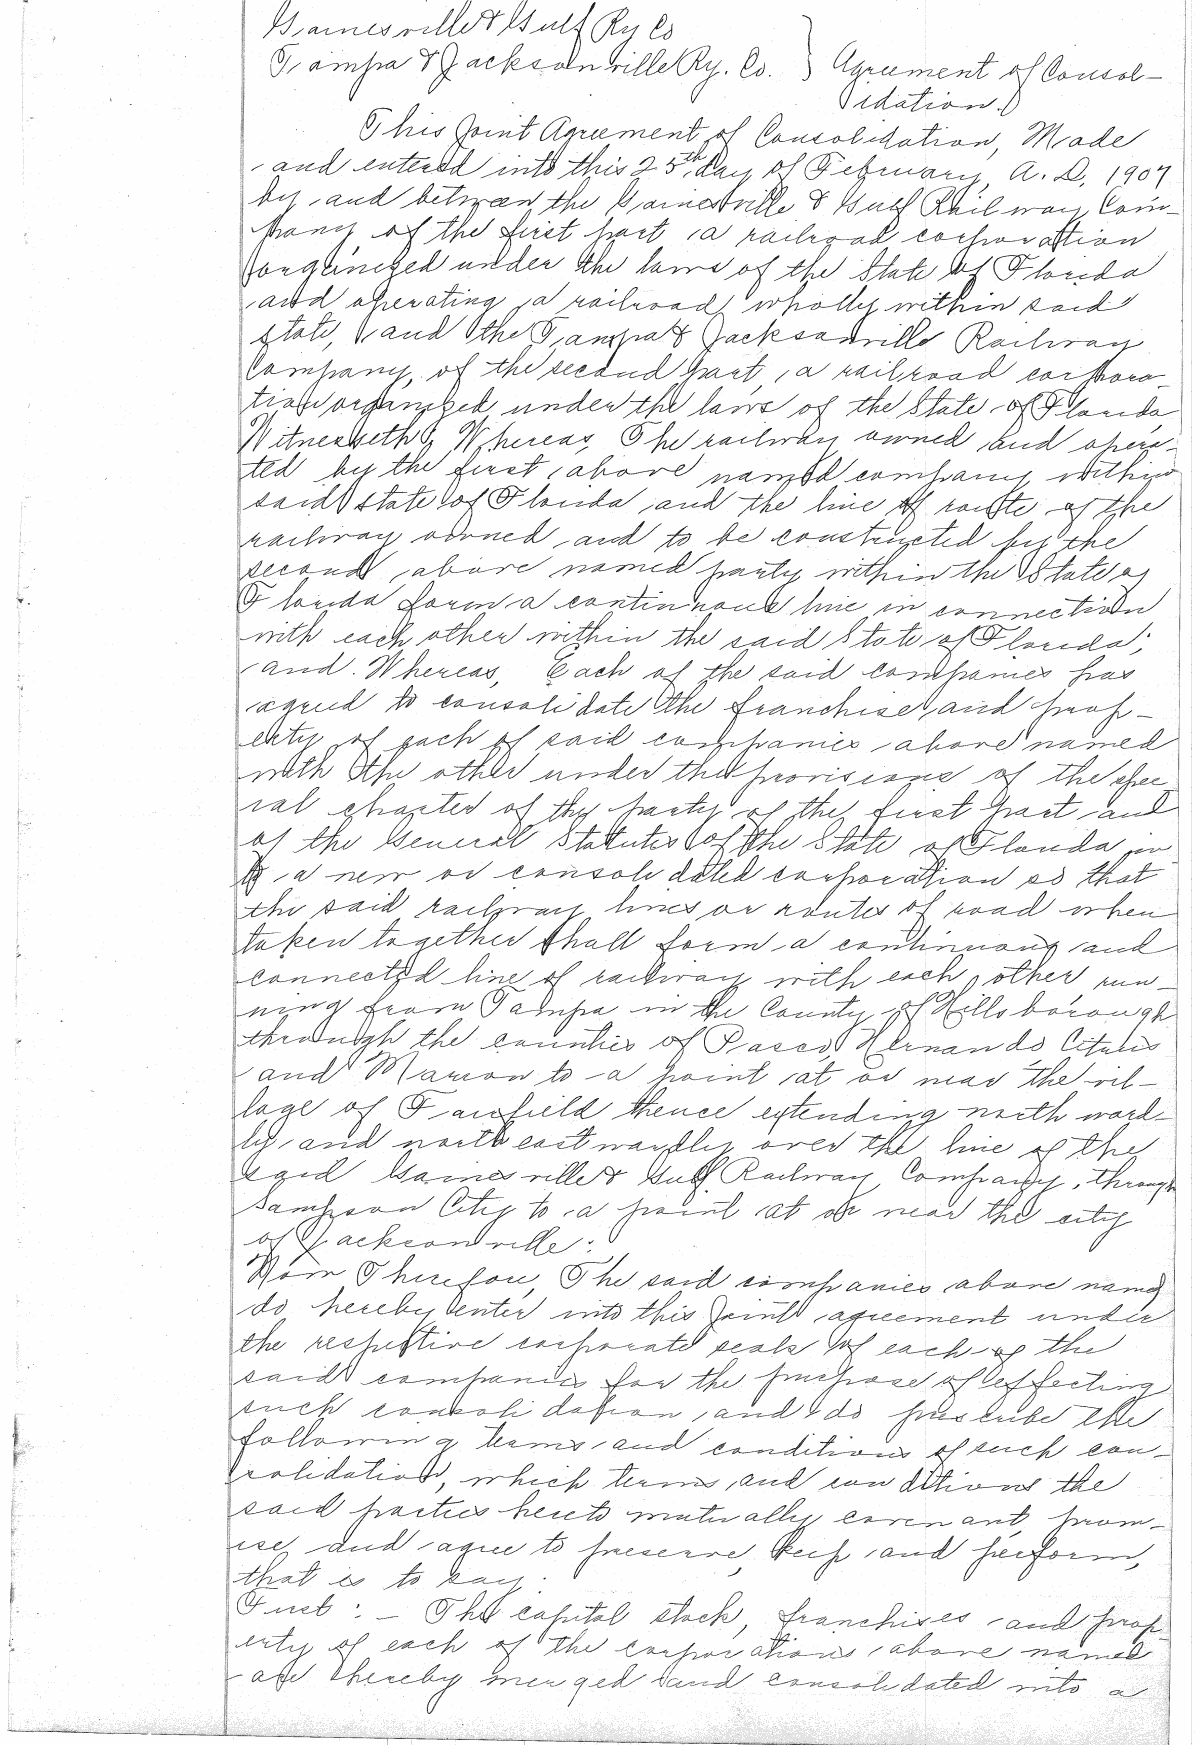 Gainesville & Gulf Ry Co
Tampa & Jacksonville Ry. Co. } Agreement of Consol-
idation.
This Joint Agreement of Consolidation, Made
and entered into this 25th day of February, A. D. 1907
by and between the Gainesville & Gulf Railway Com-
pany of the first part, a railroad corporation
organized under the laws of the State of Florida
and operating a railroad wholly within said
state, and the Tampa & Jacksonville Railway
Company, of the second part, a railroad corpora-
tion organized under the laws of the State of Florida
Witnesseth, Whereas, The railway owned and opera-
ted by the first above named company within
said state of Florida and the line of route of the
railway owned and to be constructed by the
second above named party within the State of
Florida form a continuous line in connection
with each other within the said State of Florida;
and. Whereas, Each of the said companies has
agreed to consolidate the franchise and prop-
erty of each of said companies above named
with the other under the provisions of the spec
ial charter of the party of the first part and
of the General Statutes of the State of Florida in
to a new or consolidated corporation so that
the said railway lines or routes of road when
taken together shall form a continuous and
connected line of railway with each other run-
ning from Tampa in the County of Hillsborough
through the counties of Pasco, Hernando, Citrus
and Marion to a point at or near the vil-
lage of Fairfield thence extending northward-
ly and northeastwardly over the line of the
said Gainesville & Gulf Railway Company, through
Sampson City to a point at or near the city
of Jacksonville:
Now Therefore, The said companies above named
do hereby enter into this joint agreement under
the respective corporate seals of each of the
said companies for the purpose of effecting
such consolidation, and do prescribe the
following terms and conditions of such con-
solidation, which terms and conditions the
said parties hereto mutually covenant, prom-
ise, and agree to preserve, keep and perform,
that is to say:
First: - The capital stock, franchises and prop-
erty of each of the corporations above named
are hereby merged and consolidated into a